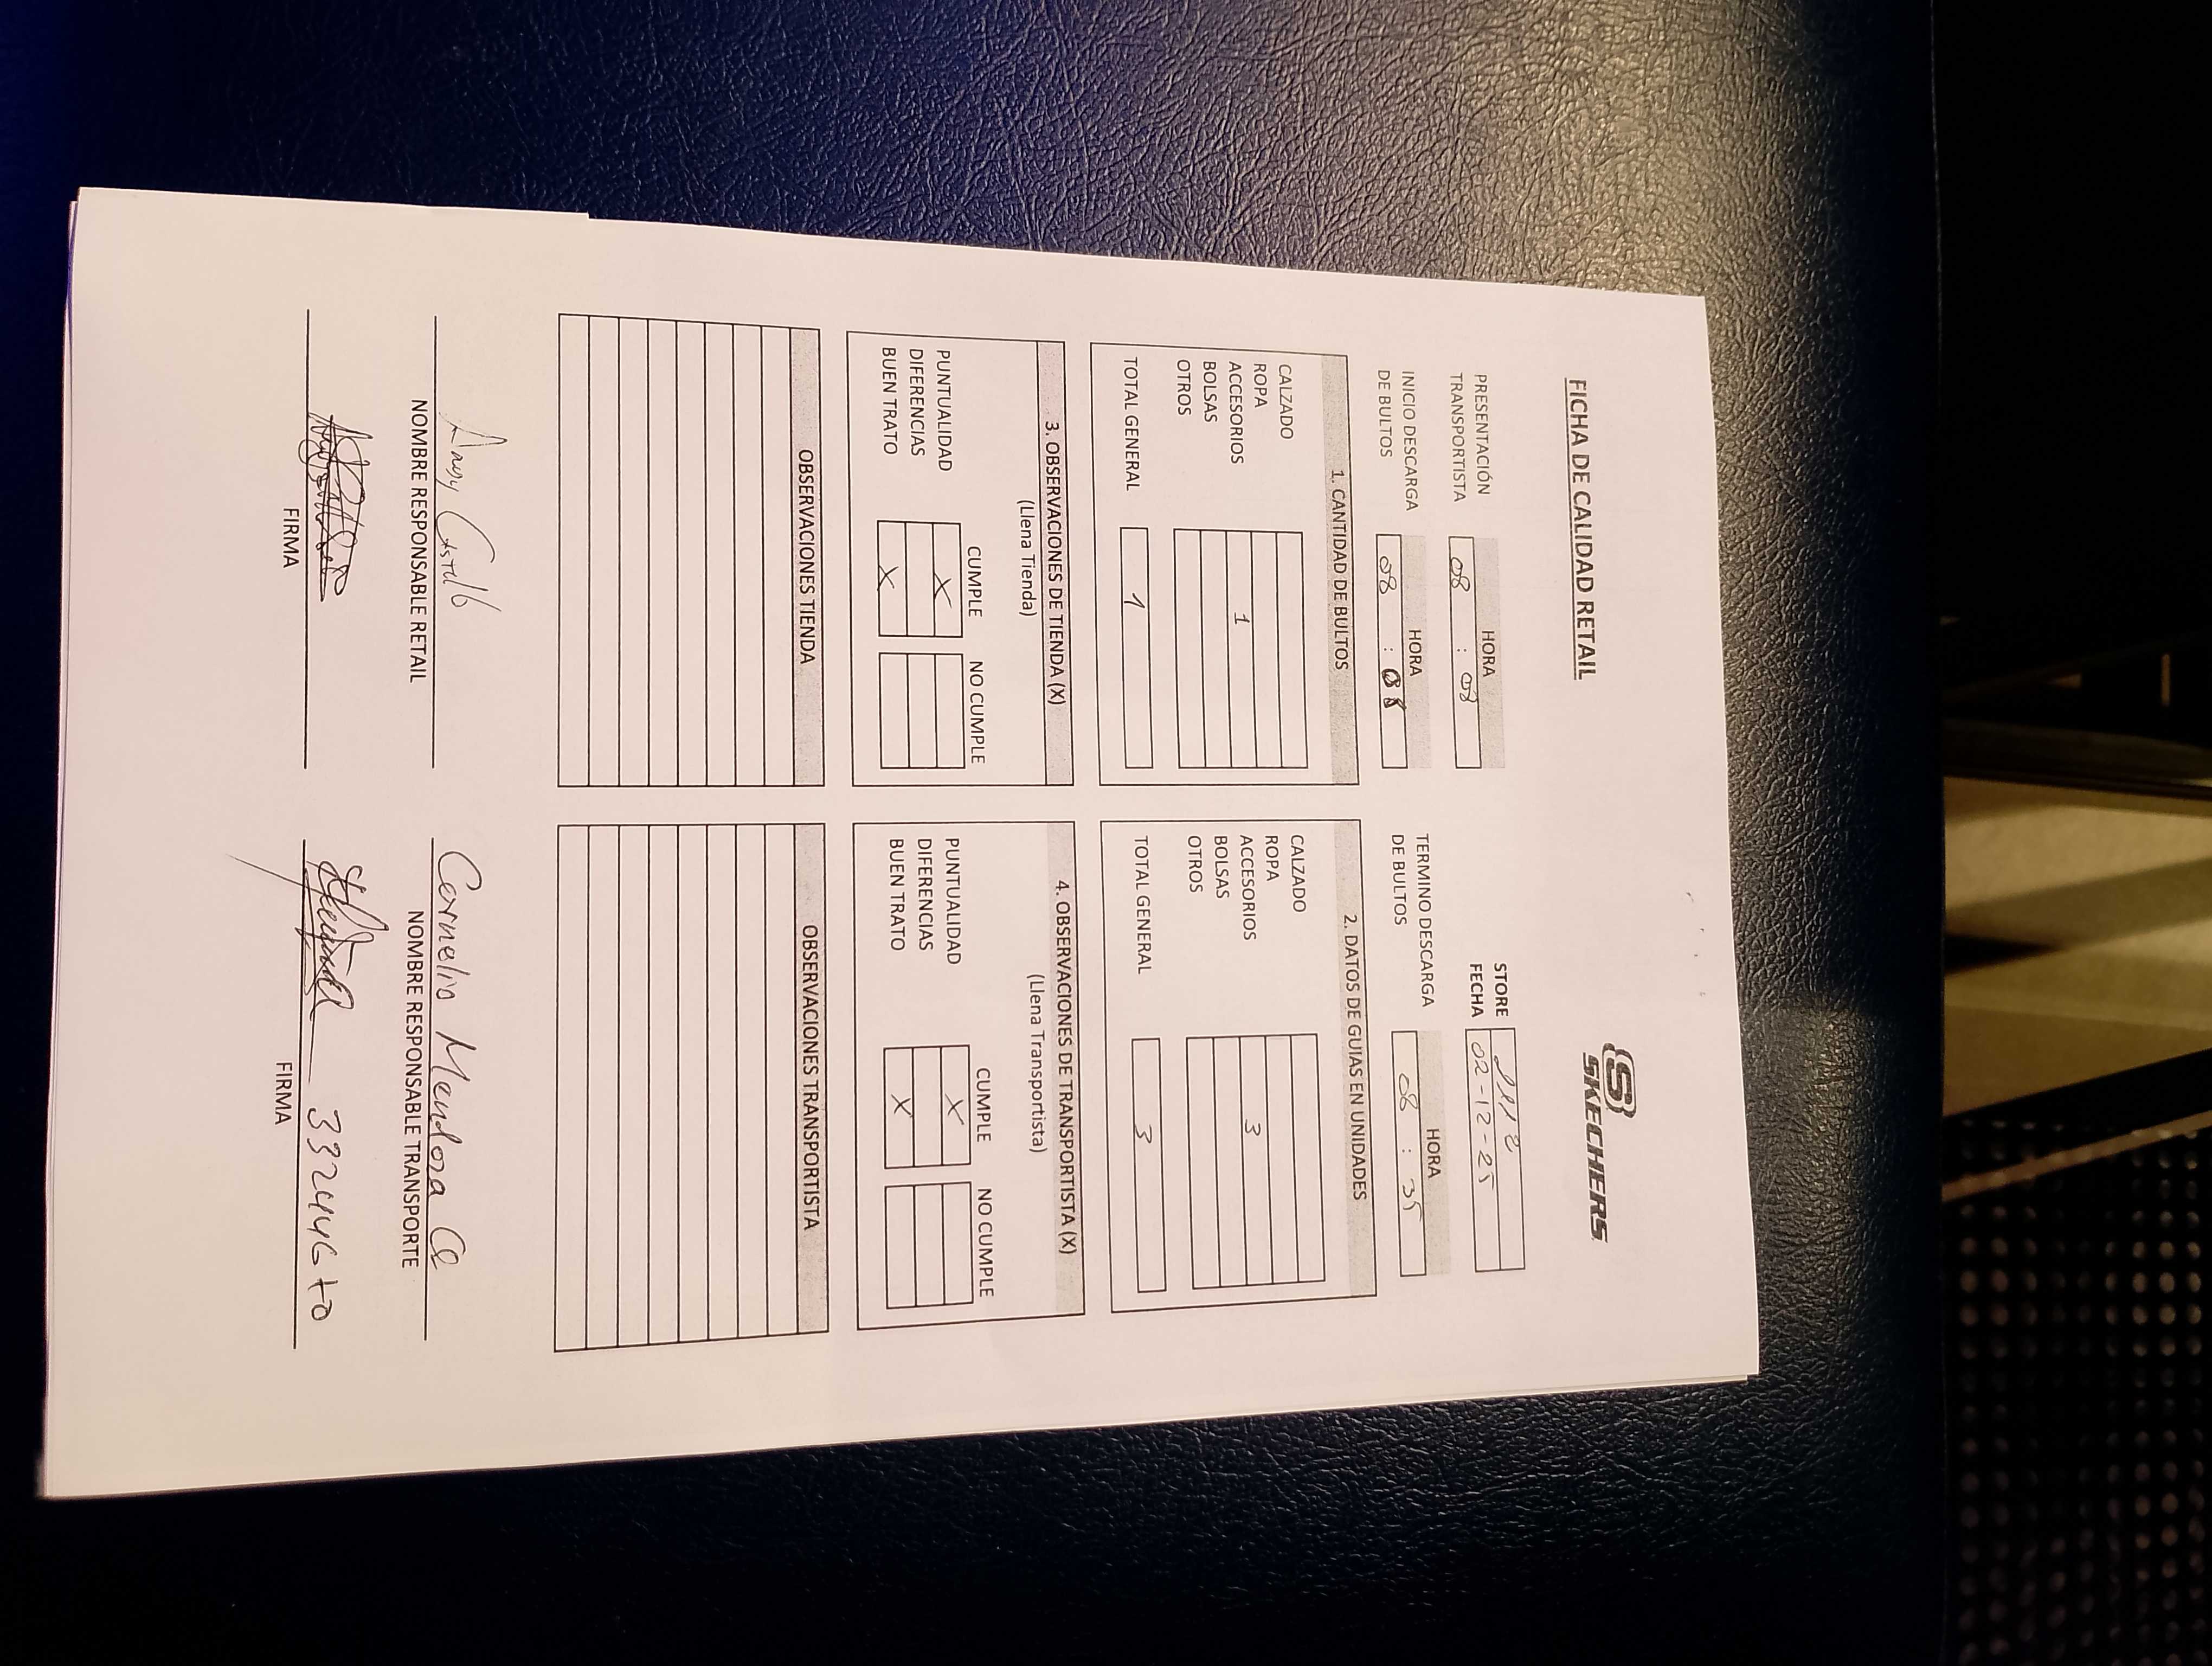 FICHA DE CALIDAD RETAIL
SKECHERS
STORE
FECHA 02-12-25
HORA
PRESENTACIÓN TRANSPORTISTA 08 : 08
HORA
INICIO DESCARGA DE BULTOS 08 : 08
HORA
TERMINO DESCARGA DE BULTOS 08 : 35
1. CANTIDAD DE BULTOS
CALZADO
ROPA
ACCESORIOS 1
BOLSAS
OTROS
TOTAL GENERAL 1
2. DATOS DE GUIAS EN UNIDADES
CALZADO
ROPA
ACCESORIOS 3
BOLSAS
OTROS
TOTAL GENERAL 3
3. OBSERVACIONES DE TIENDA (X)
(Llena Tienda)
CUMPLE NO CUMPLE
PUNTUALIDAD X
DIFERENCIAS
BUEN TRATO X
4. OBSERVACIONES DE TRANSPORTISTA (X)
(Llena Transportista)
CUMPLE NO CUMPLE
PUNTUALIDAD X
DIFERENCIAS
BUEN TRATO X
OBSERVACIONES TIENDA
OBSERVACIONES TRANSPORTISTA
NOMBRE RESPONSABLE RETAIL
FIRMA
Cornelio Mendoza
NOMBRE RESPONSABLE TRANSPORTE
FIRMA